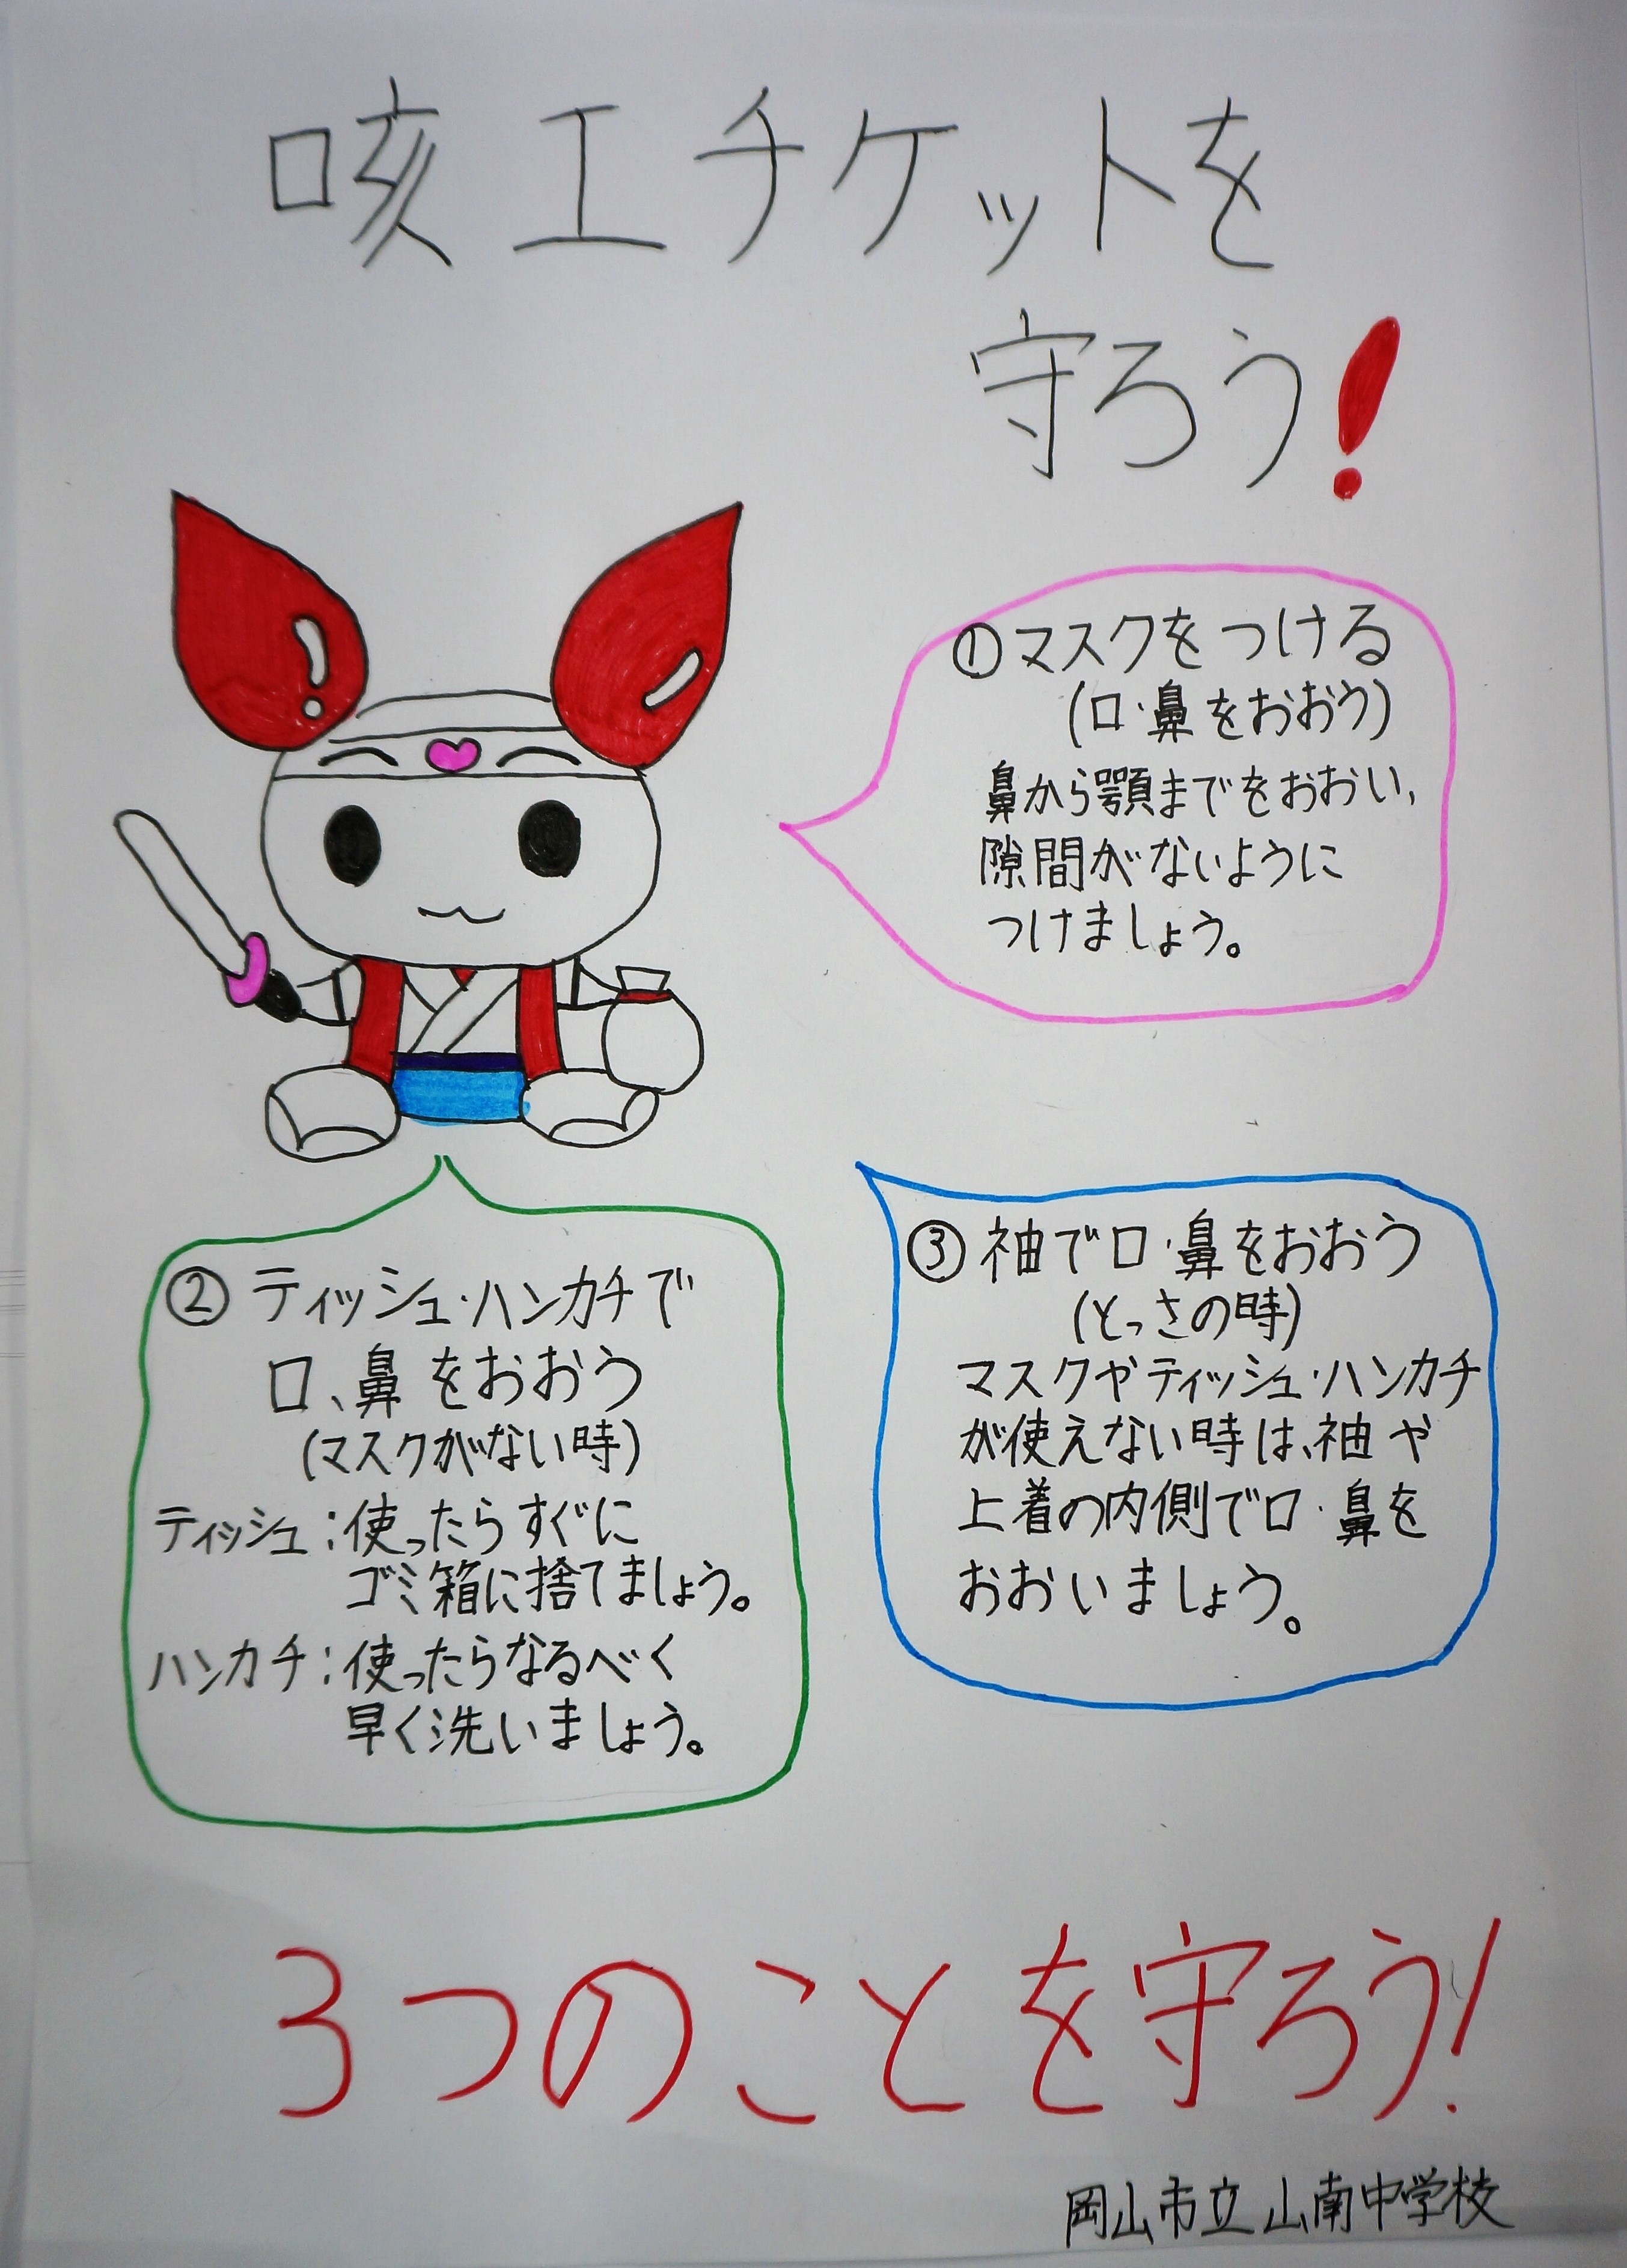 咳エチケットを
守ろう!
①マスクをつける
(口・鼻をおおう)
鼻から顎までをおおい、
隙間がないように
つけましょう。
②ティッシュ・ハンカチで
口、鼻をおおう
(マスクがない時)
ティッシュ:使ったらすぐに
ゴミ箱に捨てましょう。
ハンカチ:使ったらなるべく
早く洗いましょう。
③袖で口・鼻をおおう
(とっさの時)
マスクやティッシュ・ハンカチ
が使えない時は、袖や
上着の内側で口・鼻を
おおいましょう。
3つのことを守ろう!
岡山市立山南中学校